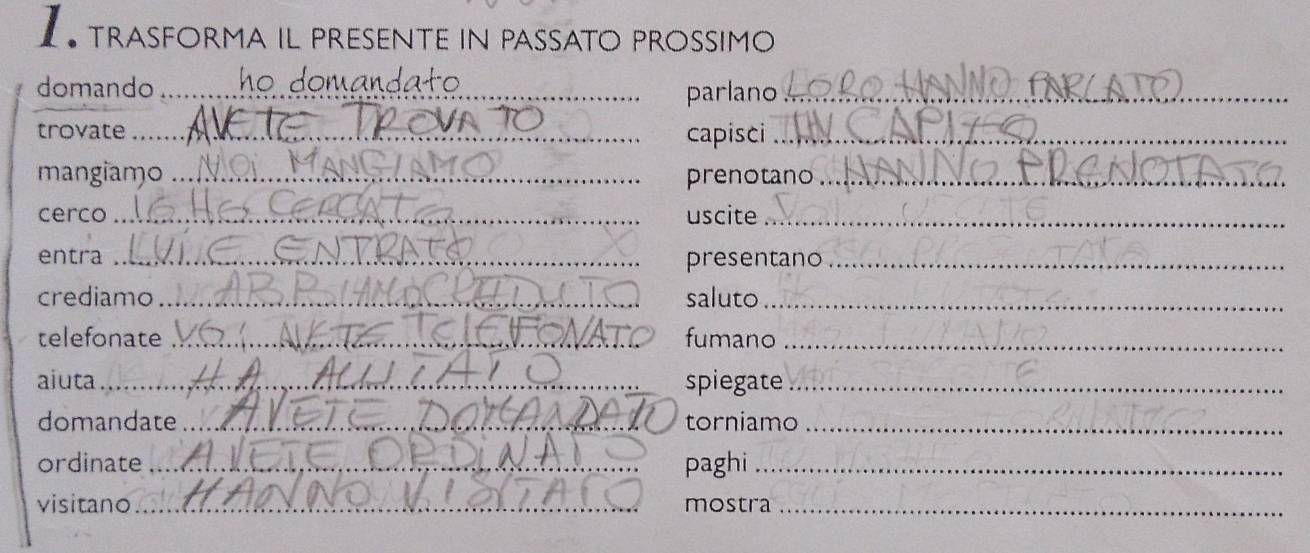 1. TRASFORMA IL PRESENTE IN PASSATO PROSSIMO
domando ho domandato
trovate AVETE TROVATO
mangiamo NOI MANGIAMO
cerco IO HO CERCATO
entra LUI E ENTRATO
crediamo ABBIAMO CREDUTO
telefonate VOI AVETE TELEFONATO
aiuta HA AIUTATO
domandate AVETE DOMANDATO
ordinate AVETE ORDINATO
visitano HANNO VISITATO
parlano LORO HANNO PARLATO
capisci CAPITO
prenotano HANNO PRENOTATO
uscite
presentano
saluto
fumano
spiegate
torniamo
paghi
mostra